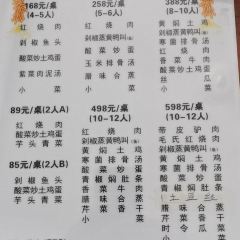 168元/桌
(4-5人)
红烧肉
剁椒鱼头
酸菜炒土鸡蛋
紫菜肉泥汤
小菜
258元/桌
(5-6人)
红烧肉
剁椒蒸黄鸭叫
酸菜炒蛋
玉米排骨汤
腊味合蒸
小菜
388元/桌
(8-10人)
黄焖土鸡
剁椒蒸黄鸭叫
寒菌排骨汤
红烧肉
香菜牛肉
酸菜炒土鸡蛋
丝瓜
小菜
89元/桌(2人A)
红烧肉
酸菜炒土鸡蛋
芋头青菜
85元/桌(2人B)
剁椒鱼头
酸菜炒土鸡蛋
芋头青菜
498元/桌
(10-12人)
红烧肉
剁椒蒸黄鸭叫
黄焖土鸡
寒菌排骨汤
酸菜炒蛋
青椒焖肚条
香菜牛肉
腊味合蒸
芹菜香干
小菜
598元/桌
(10-12人)
带皮驴肉
毛氏红烧肉
剁椒蒸黄鸭叫
黄焖土鸡
寒菌排骨汤
青椒焖肚条
土豆丝
腊味合蒸
芹菜香干
时令瓜
小菜